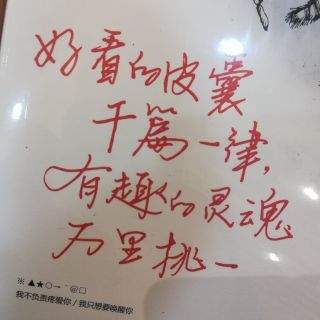 好看的皮囊
千篇一律,
有趣的灵魂
万里挑一
※▲★○→¨@□
我不负责疼爱你/我只想要唤醒你